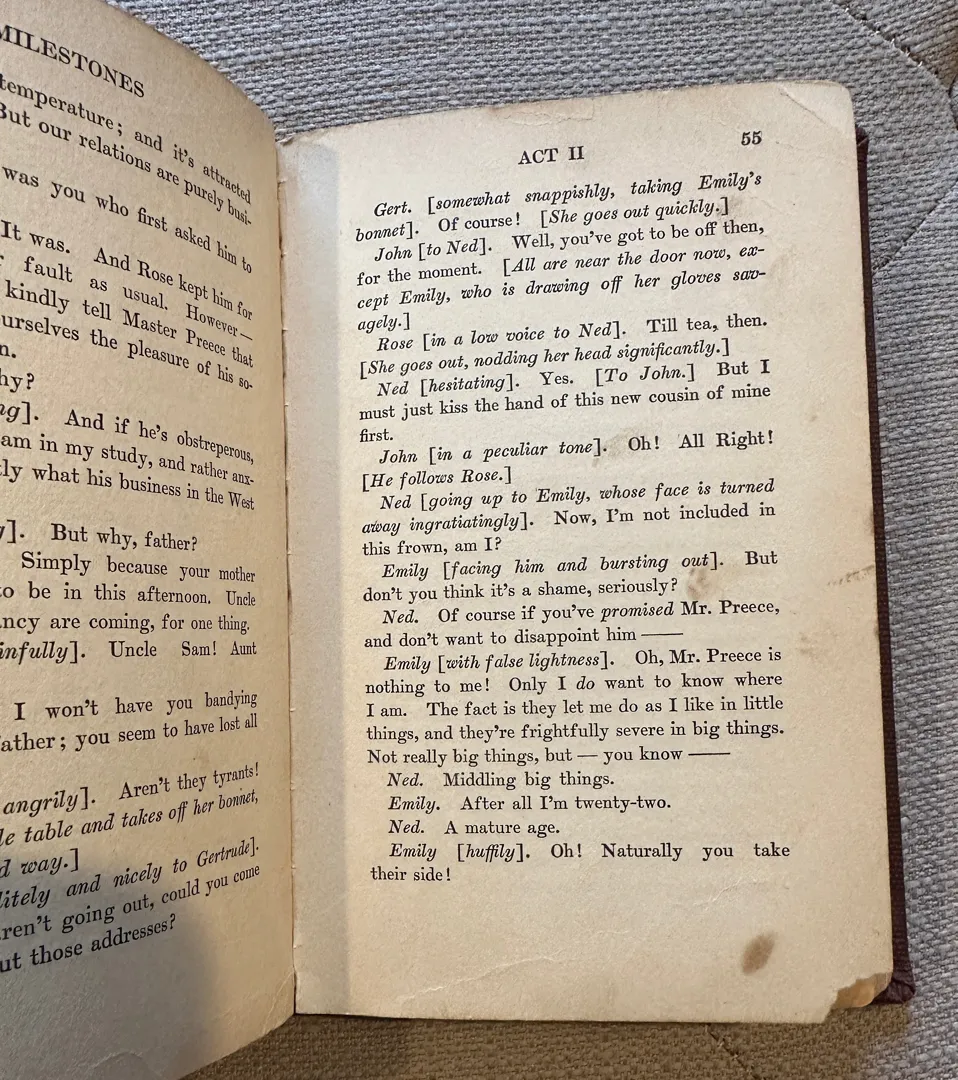 MILESTONES
temperature; and it's attracted
But our relations are purely busi-
was you who first asked him to
It was. And Rose kept him for
fault as usual. However—
kindly tell Master Preece that
ourselves the pleasure of his so-
n.
hy?
ng]. And if he's obstreperous,
am in my study, and rather anx-
tly what his business in the West
y]. But why, father?
Simply because your mother
to be in this afternoon. Uncle
ncy are coming, for one thing.
infully]. Uncle Sam! Aunt
I won't have you bandying
father; you seem to have lost all
angrily]. Aren't they tyrants!
le table and takes off her bonnet,
d way.]
litely and nicely to Gertrude].
ren't going out, could you come
ut those addresses?
ACT II 55
Gert. [somewhat snappishly, taking Emily's
bonnet]. Of course! [She goes out quickly.]
John [to Ned]. Well, you've got to be off then,
for the moment. [All are near the door now, ex-
cept Emily, who is drawing off her gloves sav-
agely.]
Rose [in a low voice to Ned]. Till tea, then.
[She goes out, nodding her head significantly.]
Ned [hesitating]. Yes. [To John.] But I
must just kiss the hand of this new cousin of mine
first.
John [in a peculiar tone]. Oh! All Right!
[He follows Rose.]
Ned [going up to Emily, whose face is turned
away ingratiatingly]. Now, I'm not included in
this frown, am I?
Emily [facing him and bursting out]. But
don't you think it's a shame, seriously?
Ned. Of course if you've promised Mr. Preece,
and don't want to disappoint him ——
Emily [with false lightness]. Oh, Mr. Preece is
nothing to me! Only I do want to know where
I am. The fact is they let me do as I like in little
things, and they're frightfully severe in big things.
Not really big things, but — you know ——
Ned. Middling big things.
Emily. After all I'm twenty-two.
Ned. A mature age.
Emily [huffily]. Oh! Naturally you take
their side!